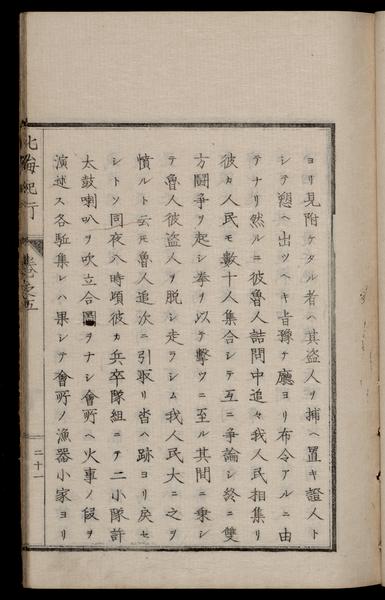 ヨリ見附ケタル者ハ其盗人ヲ捕ヘ置キ證人ト
シテ愬ヘ出ツヘキ旨豫テ廳ヨリ布令アルニ由
テナリ然ルニ彼魯人詰問中追々我人民相集リ
彼カ人民モ數十人集合シテ互ニ爭論シ終ニ雙
方鬪爭ヲ起シ拳ヲ以テ擊ツニ至ル其間ニ乗シ
テ魯人彼盗人ヲ脱シ走ラシム我人民大ニ之ヲ
憤ルト云モ魯人追次ニ引取リ沓ハ跡ヨリ戻セ
シトソ同夜八時頃彼カ兵卒隊組ニテ二小隊許
太鼓喇叭ヲ吹立合圖ヲナシ會所ヘ火事ノ段ヲ
演述ス各駈集レハ果シテ會所ノ漁器小家ヨリ
北海紀行
卷之五
二十一